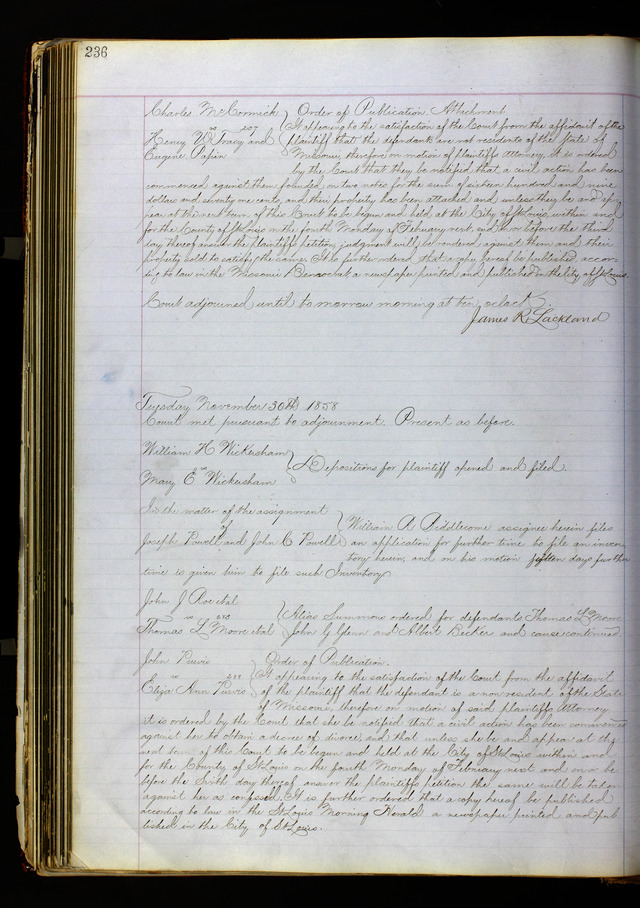 236
Charles McCormick } Order of Publication Attachment
vs 207 It appearing to the satisfaction of the Court from the affidavit of the
Henry W Tracy and plaintiff that the defendants are not residents of the State of
Eugene Papin Missouri, therefore on motion of plaintiffs attorney, it is ordered
by the Court that they be notified that a civil action has been
commenced against them founded on two notes for the sum of sixteen hundred and nine
dollars and seventy one cents, and their property has been attached and unless they be and ap
pear at the next term of this Court to be begun and held at the City of St Louis within and
for the County of St Louis on the fourth Monday of February next and on or before the third
day thereof answer the plaintiffs petition, judgment will be rendered against them and their
property sold to satisfy the same. It is further ordered that a copy hereof be published accor-
ding to law in the Missouri Democrat a newspaper printed and published in the City of St Louis.
Court adjourned until to morrow morning at ten oclock.
James R. Lackland
Tuesday November 30th 1858
Court met pursuant to adjournment. Present as before.
William H Wickersham
vs } Depositions for plaintiff opened and filed.
Mary E Wickersham
In the matter of the assignment
of William A. Piddlecome assignee herein files
Joseph Powell and John C Powell an application for further time to file an inven
tory herein, and on his motion fifteen days further
time is given him to file such Inventory
John J Roe et al } Alias Summons ordered for defendants Thomas L Moore
vs
Thomas L Moore et al John G Glenn and Albert Becker and cause continued
John Purvis } Order of Publication.
vs It appearing to the satisfaction of the Court from the affidavit
Eliza Ann Purvis of the plaintiff that the defendant is a non resident of the State
of Missouri, therefore on motion of said plaintiffs Attorney
it is ordered by the Court that she be notified that a civil action has been commenced
against her to obtain a decree of divorce, and that unless she be and appear at the
next term of this Court to be begun and held at the City of St Louis within and
for the County of St Louis on the fourth Monday of February next and on or be
fore the sixth day thereof answer the plaintiffs petition the same will be taken
against her as confessed. It is further ordered that a copy hereof be published
according to law in the St Louis Morning Herald a newspaper printed and pub
lished in the City of St Louis.